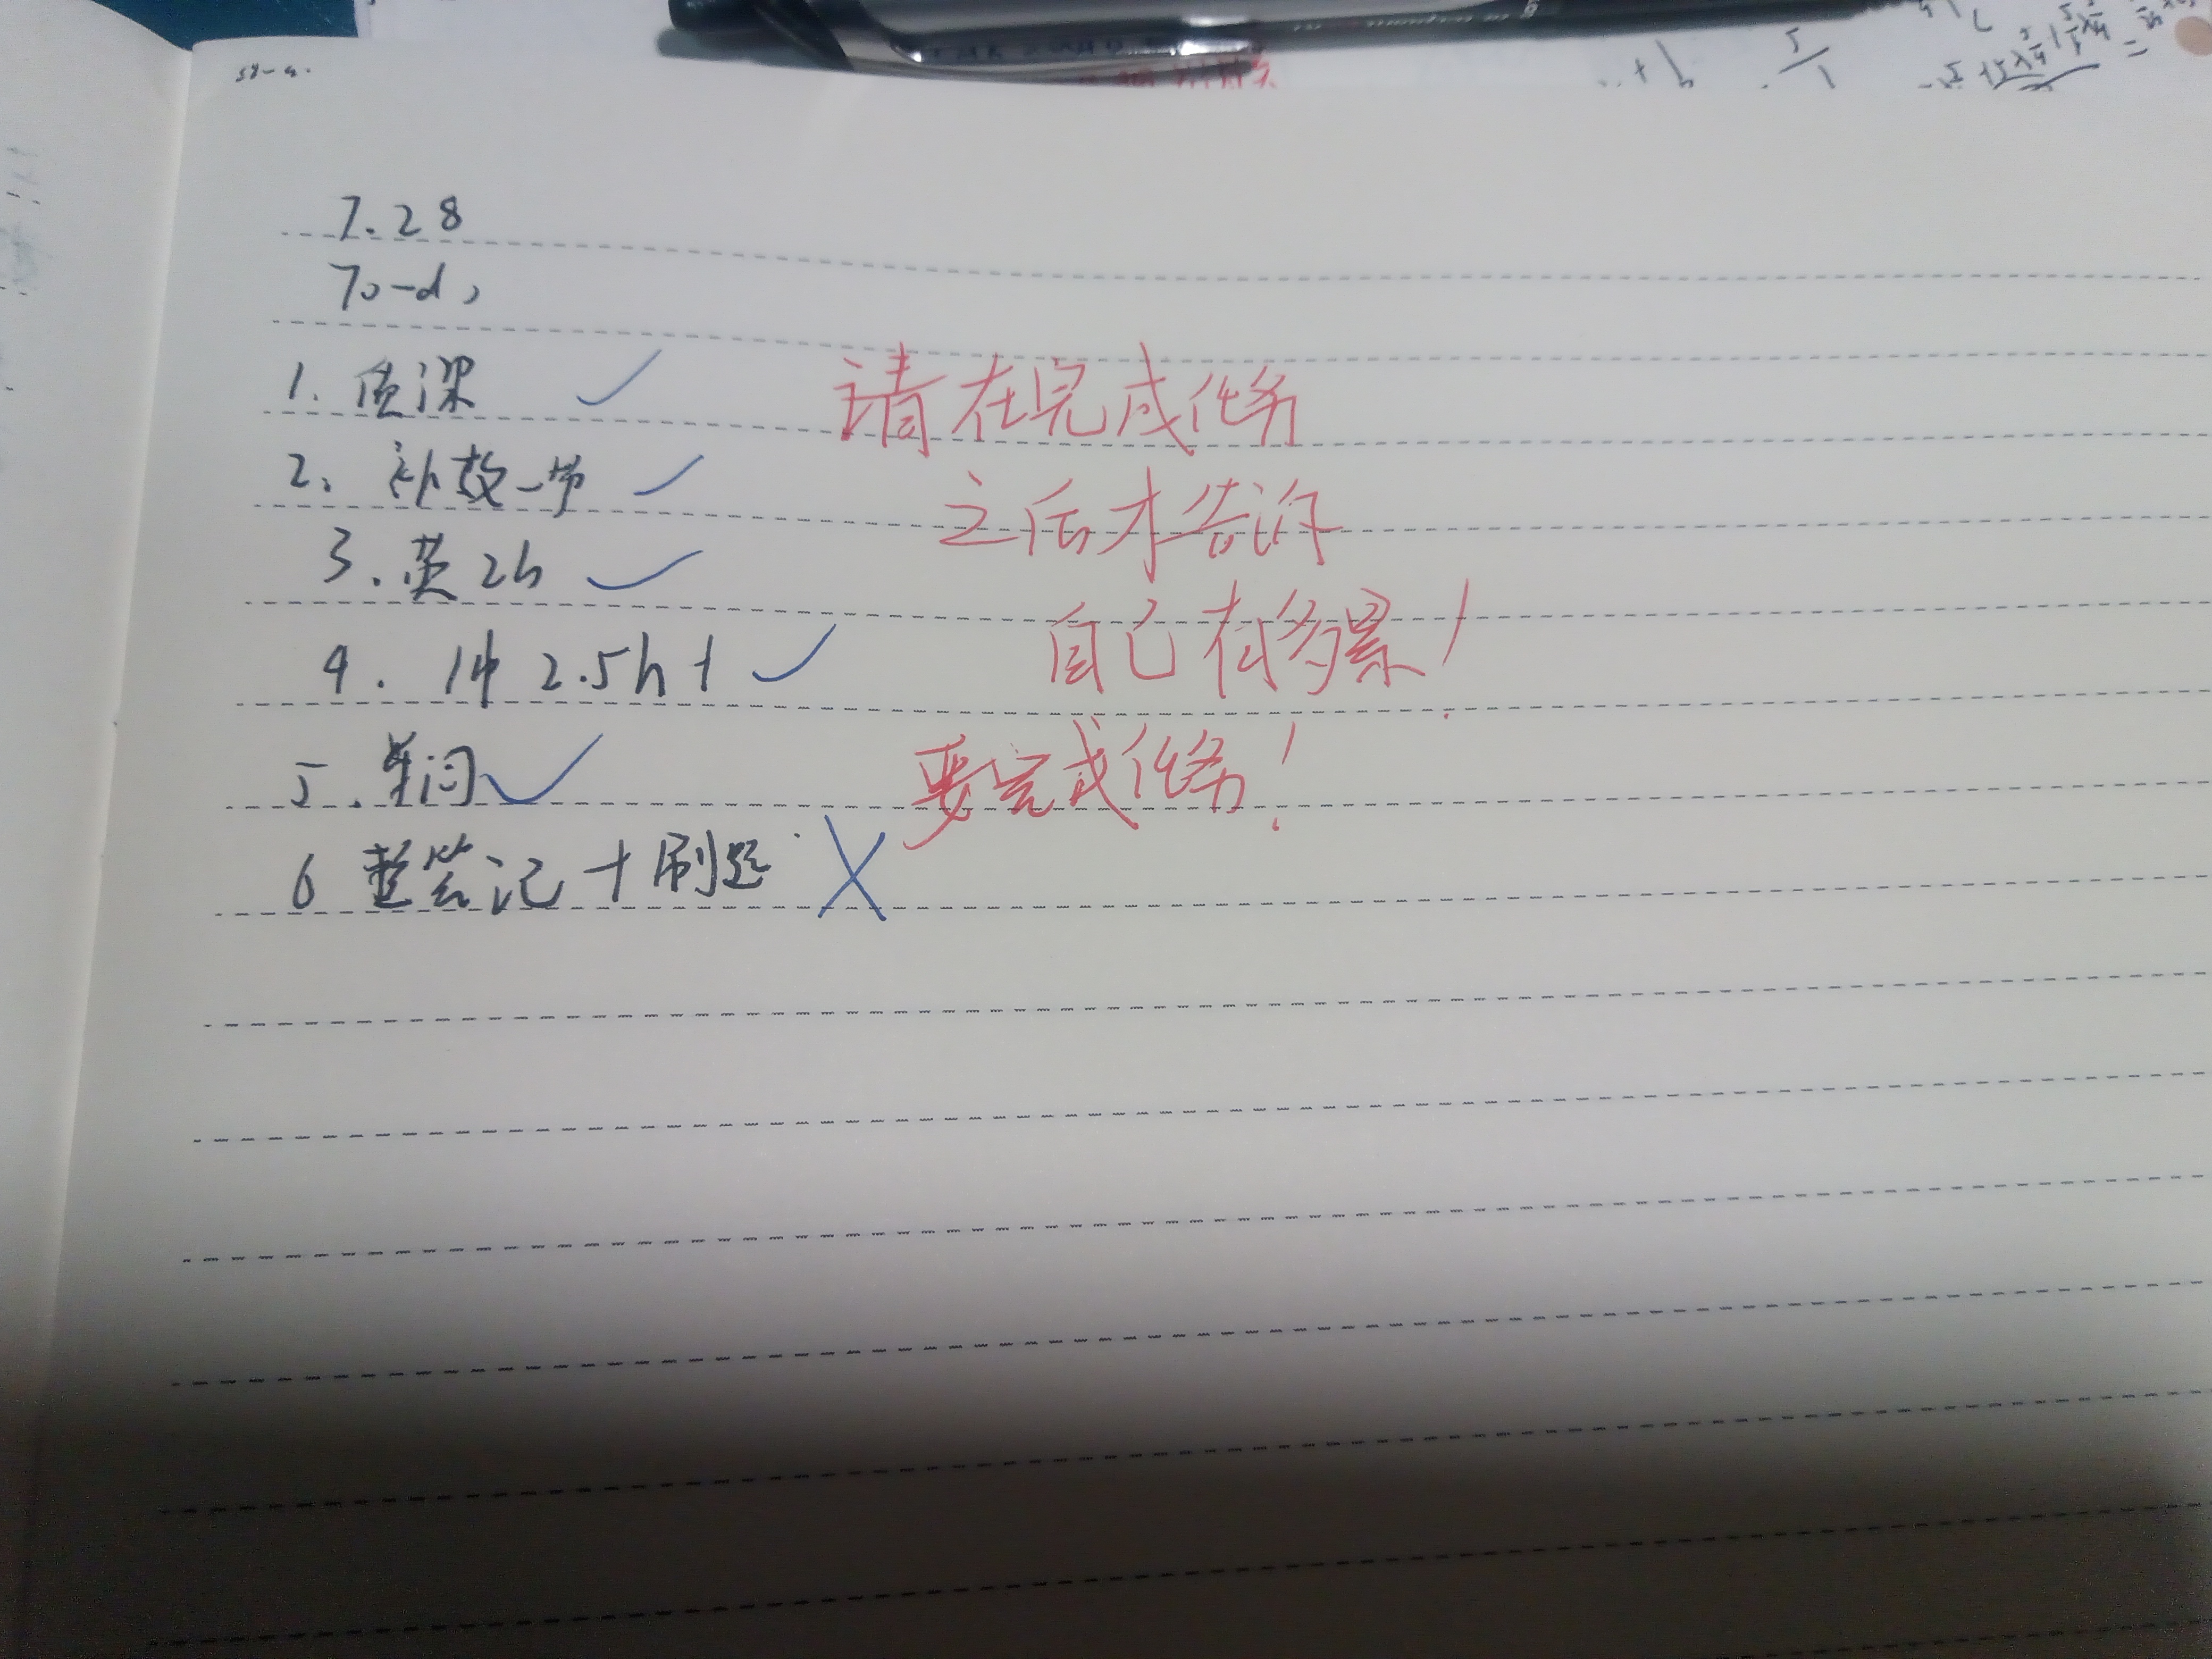 7.28
To-do
1.
2. 补数一节
3. 英 2h
4. 2.5h+
5.
6 整笔记+刷题
请在完成任务
之后才告诉
自己有多累!
要完成任务!